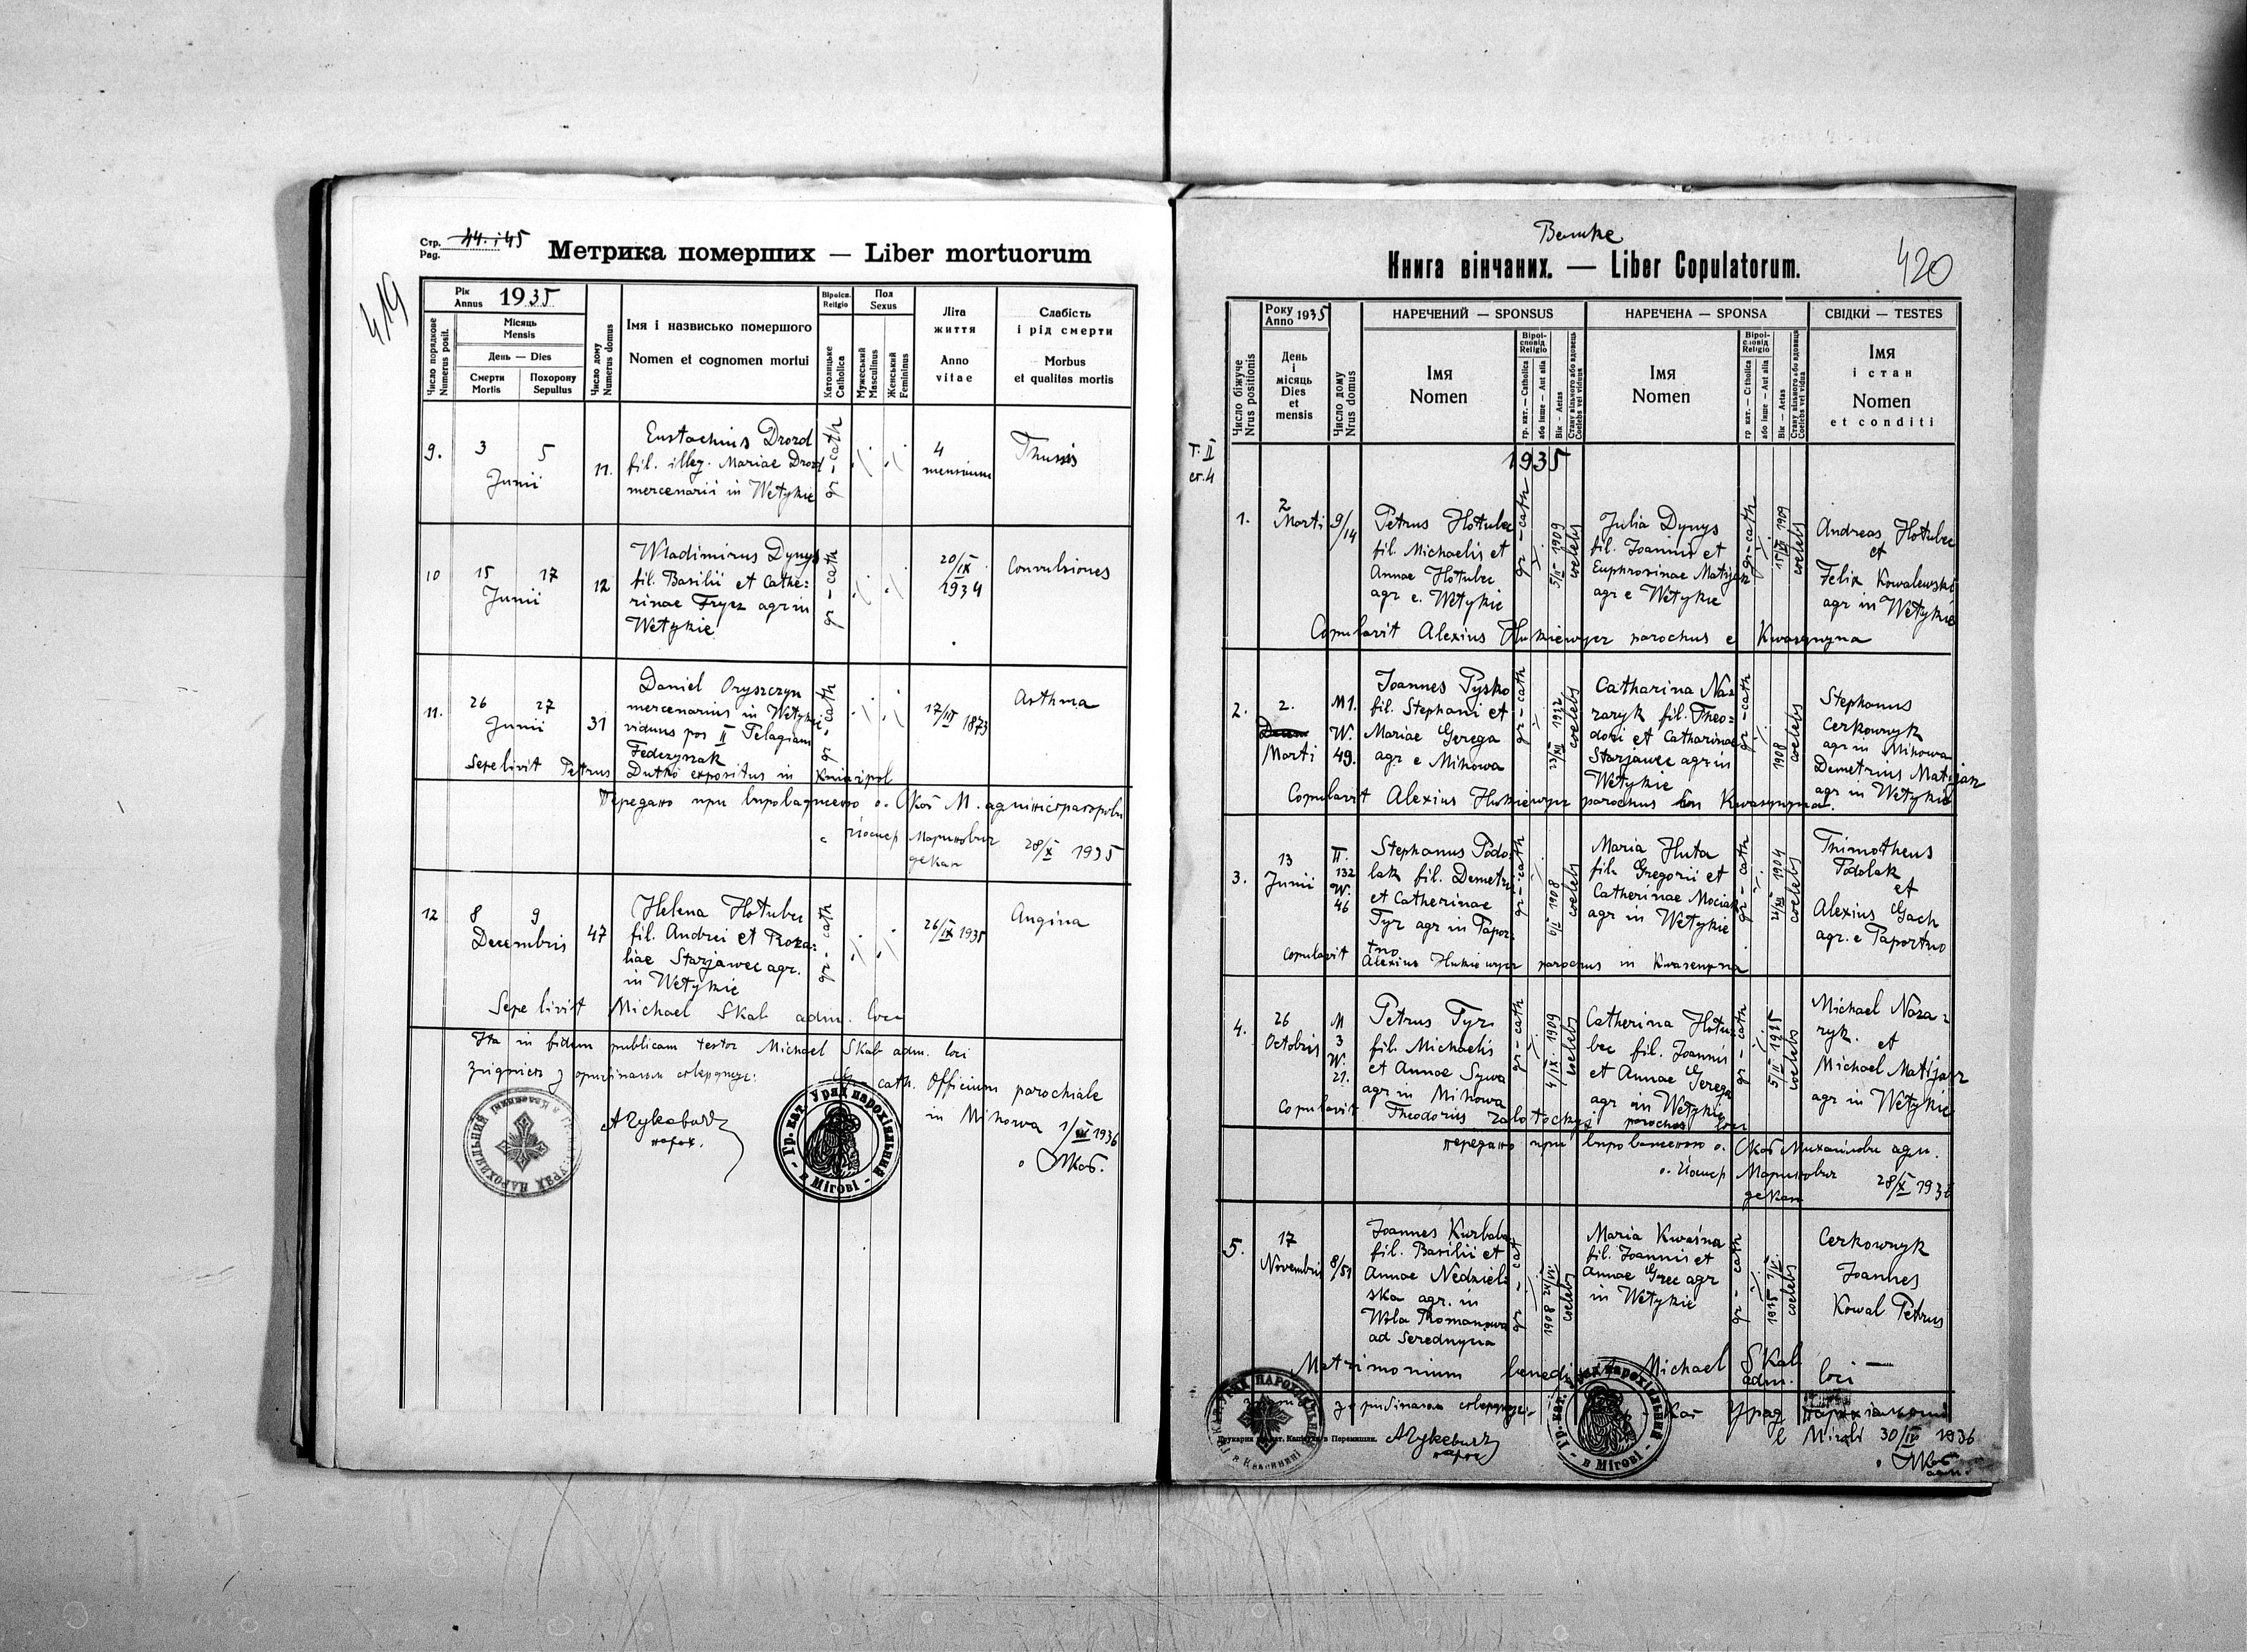 419
Стр. Pag. 44. i 45
Метрика померших — Liber mortuorum
Рік Annus 1935
Число порядкове
Numerus posit.
Місяць
Mensis
День — Dies
Смерти Mortis
Похорону Sepultus
Число дому
Numerus domus
Імя і назвисько помершого
Nomen et cognomen mortui
Віроісп. Religio
Католицьке
Catholica
Пол
Sexus
Мужеський
Masculinus
Женський
Femininus
Літа
життя
Anno
vitae
Слабість
і рід смерти
Morbus
et qualitas mortis
9. 3 5
Junii
11.
Eustachius Drozd
fil. illeg. Mariae Drozd
mercenarii in Wetykie
gr-cath
4
mensium
Thussis
10 15 17
Junii
12
Wladimirus Dynys
fil. Basilii et Cathe:
rinae Frycz agr in
Wetykie
gr-cath
20/IX
1934
Convulsiones
11. 26 27
Junii
31
Daniel Oryszczyn
mercenarius in Wetykie,
viduus pos II Pelagiam
Fedezynak
gr-cath
17/III 1873
Asthma
Sepelivit Petrus Dutko expositus in Kniazipol
Передано при впровадженю о. Скаб М. адміністраторови
Йосиф Маринович
декан
28/X 1935
12 8 9
Decembris
47
Helena Hotubec
fil. Andrei et Roza:
liae Starjawec agr.
in Wetykie
gr-cath
26/IX 1935
Angina
Sepelivit Michael Skab adm. loci
Ita in fidem publicam testor Michael Skab adm. loci
cath. Officium parochiale
in Mihowa 1/III 1936
парох.
Гр. кат. Уряд парохіяльний
в Мігові
420
Велике
Книга вінчаних. — Liber Copulatorum.
Число біжуче
Nrus positionis
Року Anno 1935
День
і
місяць
Dies
et
mensis
Число дому
Nrus domus
НАРЕЧЕНИЙ — SPONSUS
Імя
Nomen
Віроісповід
Religio
гр. кат. — Catholica
або інше — Aut alia
Вік — Aetas
Стану вільного або вдовець
Coelebs vel viduus
НАРЕЧЕНА — SPONSA
Імя
Nomen
Віроісповід
Religio
гр. кат. — Catholica
або інше — Aut alia
Вік — Aetas
Стану вільного або вдовиця
Coelebs vel vidua
СВІДКИ — TESTES
Імя
і стан
Nomen
et conditi
т. II
ст. 4
1935
1. 2
Marti
9/14
Petrus Hotubec
fil. Michaelis et
Annae Hotubec
agr e. Wetykie
gr-cath
5/II 1909
coelebs
Julia Dynys
fil. Joannis et
Euphrosinae Matijasz
agr e Wetykie
gr-cath
15/VI 1909
coelebs
Andreas Hotubec
et
Felix Kowalewski
agr in Wetykie
Copulavit Alexius Hukiewycz parochus e Kwasenyna
2. 2.
Marti
M 1.
W.
49.
Joannes Pysko
fil. Stephani et
Mariae Gerega
agr e Mihowa
gr-cath
23/XII 1912
coelebs
Catharina Na:
zaryk fil. Theo:
dori et Catharinae
Starjawec agr in
Wetykie
gr-cath
1908
coelebs
Stephanus
Cerkownyk
agr in Mihowa
Demetrius Matijasz
agr in Wetykie
Copulavit Alexius Hukiewycz parochus in Kwasenyna.
3. 13
Junii
П.
132
W.
46
Stephanus Podo
lak fil. Demetri
et Catherinae
Tyz agr in Papor:
tno
gr-cath
6/I 1908
coelebs
Maria Huta
fil. Gregorii et
Catherinae Mociak
agr in Wetykie
gr-cath
21/XII 1904
coelebs
Thimotheus
Podolak
et
Alexius Gach
agr. e Paportno
copulavit Alexius Hukiewycz parochus in Kwasenyna
4. 26
Octobris
M
3
W.
21.
Petrus Tyz
fil. Michaelis
et Annae Sywa
agr in Mihowa
gr-cath
4/IX 1909
coelebs
Catherina Hotu:
bec fil. Joannis
et Annae Gerega
agr in Wetykie
gr-cath
5/II 1915
coelebs
Michael Naza:
ryk. et
Michael Matijasz
agr in Wetykie
Copulavit Theodorius Zalotockyj parochus loci
передано при впровадженю о. Скаб Михайлови адм.
о. Йосиф Маринович
декан
28/X 1935
5. 17
Novembris
8/51
Joannes Kurbaba
fil. Basilii et
Annae Nedziel:
ska agr. in
Wola Romanowa
ad Serednycia
gr-cat
1908 24/VI
coelebs
Maria Kwaśna
fil. Joannis et
Annae Grec agr
in Wetykie
gr-cath
1915 7/VI
coelebs
Cerkownyk
Joannes
Kowal Petrus
Matrimonium benedixit Michael Skab
adm. loci
Кат Уряд парохіяльний
в Мігові 30/IV 1936
парох
Гр. кат. Уряд парохіяльний
в Мігові